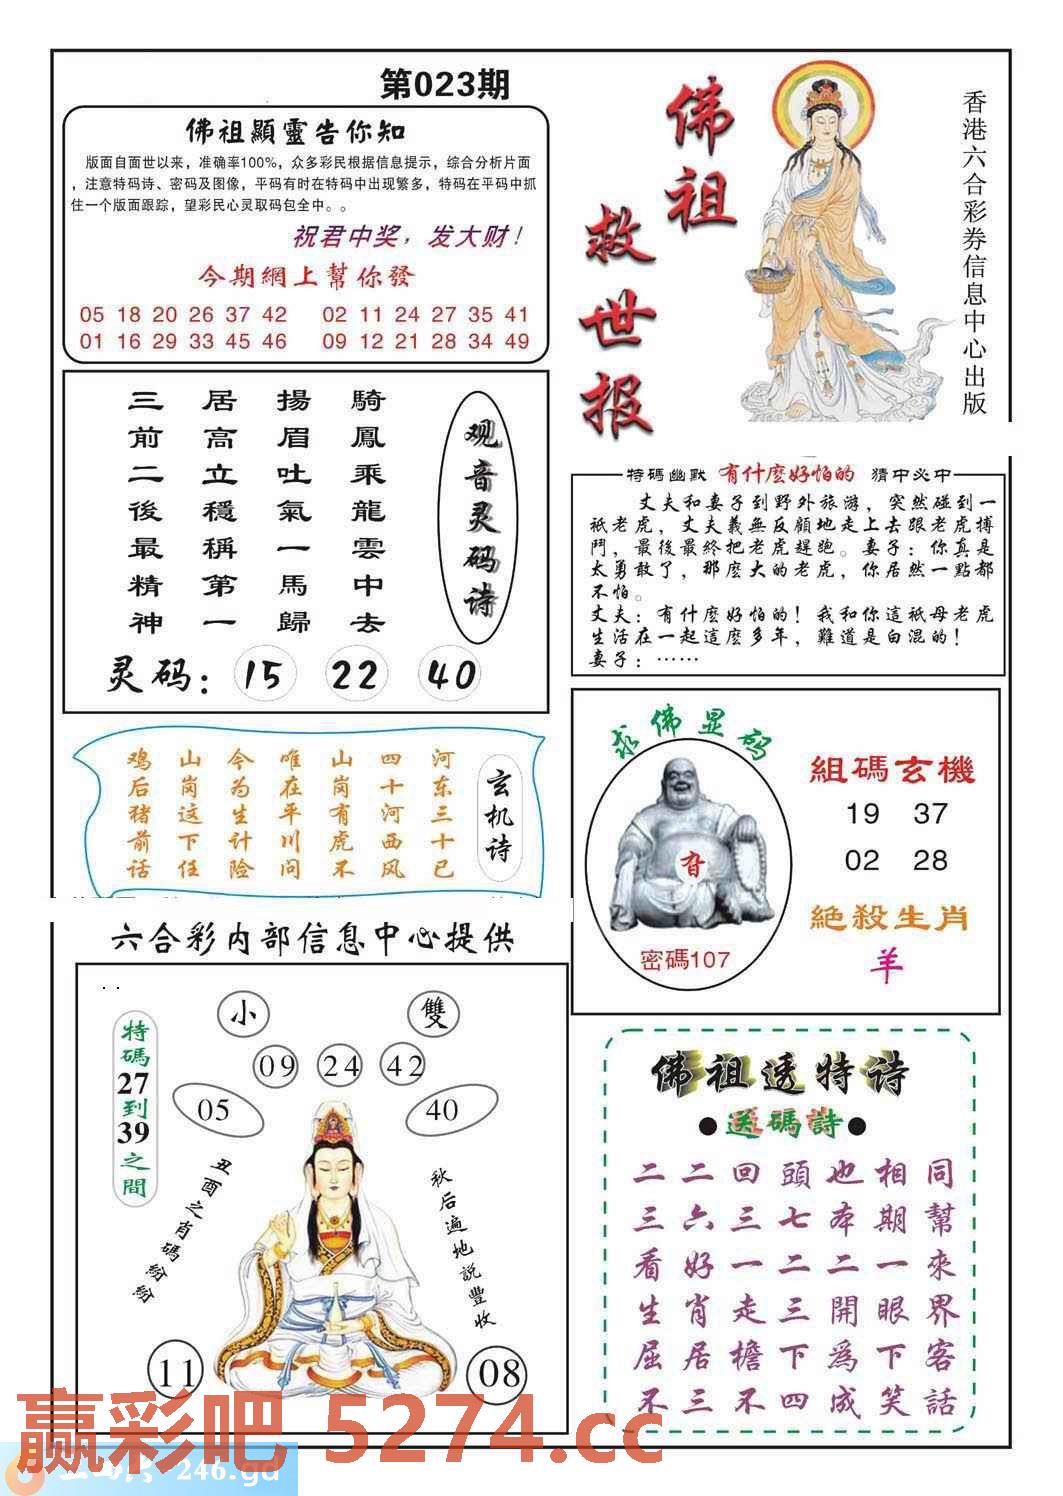 第023期
佛祖顯靈告你知
版面自面世以来，准确率100%，众多彩民根据信息提示，综合分析片面
，注意特码诗、密码及图像，平码有时在特码中出现繁多，特码在平码中抓
住一个版面跟踪，望彩民心灵取码包全中。。
祝君中奖，发大财！
今期網上幫你發
05 18 20 26 37 42 02 11 24 27 35 41
01 16 29 33 45 46 09 12 21 28 34 49
佛祖
救世报
香港六合彩券信息中心出版
观音灵码诗
騎鳳乘龍雲中去
揚眉吐氣一馬歸
居高立穩稱第一
三前二後最精神
灵码：15 22 40
特碼幽默 有什麼好怕的 猜中必中
丈夫和妻子到野外旅游，突然碰到一
祇老虎，丈夫義無反顧地走上去跟老虎搏
鬥，最後最終把老虎趕跑。妻子：你真是
太勇敢了，那麼大的老虎，你居然一點都
不怕。
丈夫：有什麼好怕的！我和你這祇母老虎
生活在一起這麼多年，難道是白混的！
妻子：……
玄机诗
河东三十已
四十河西风
山岗有虎不
唯在平川问
今为生计险
山岗这下任
鸡后猪前话
求佛显码
密碼107
組碼玄機
19 37
02 28
絶殺生肖
羊
六合彩内部信息中心提供
小 雙
09 24 42
05 40
特碼27到39之間
丑酉之肖碼紛紛
秋后遍地説豐收
11 08
佛祖透特诗
●送碼詩●
同幫來界客話
相期一眼下笑
也本二開為成
頭七二三下四
回三一走檐不
二六好肖居三
二三看生屈不
赢彩吧 5274.cc
246.gd